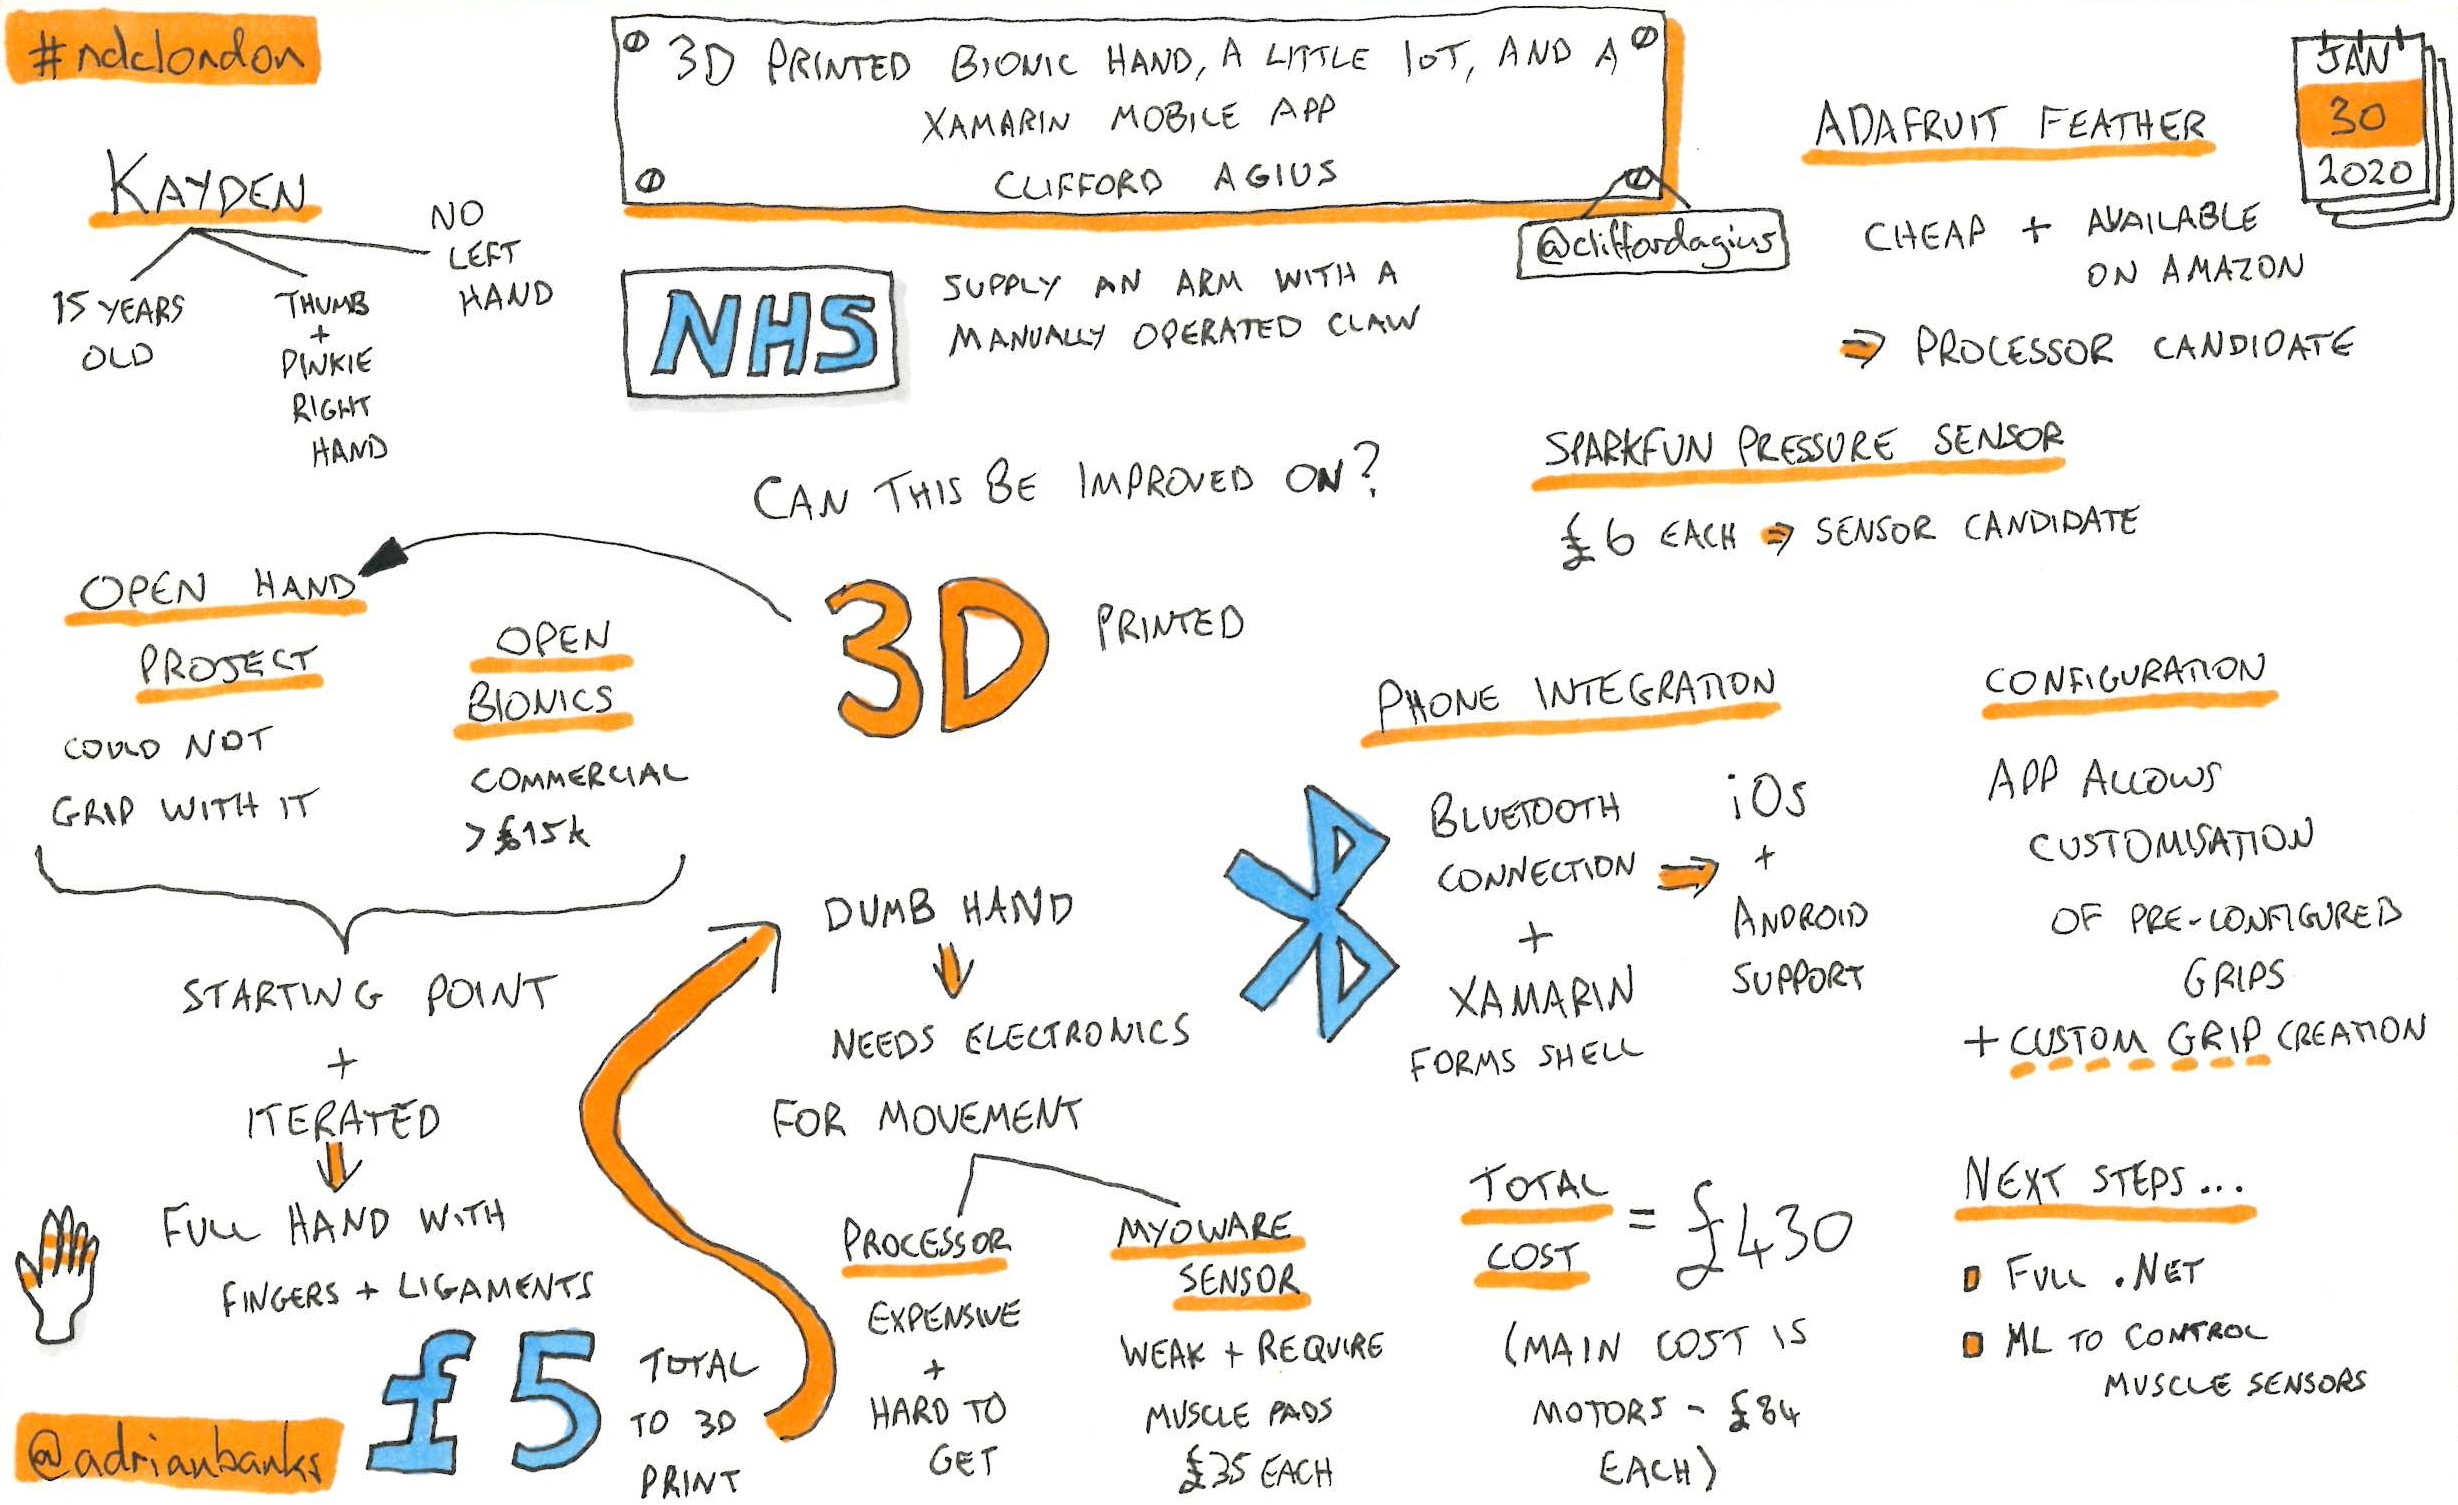 #ndclondon
3D PRINTED BIONIC HAND, A LITTLE IOT, AND A
XAMARIN MOBILE APP
CLIFFORD AGIUS
@cliffordagius
JAN
30
2020
KAYDEN
15 YEARS
OLD
THUMB
+
PINKIE
RIGHT
HAND
NO
LEFT
HAND
NHS
SUPPLY AN ARM WITH A
MANUALLY OPERATED CLAW
CAN THIS BE IMPROVED ON?
3D PRINTED
OPEN HAND
PROJECT
COULD NOT
GRIP WITH IT
OPEN
BIONICS
COMMERCIAL
>£15k
STARTING POINT
+
ITERATED
FULL HAND WITH
FINGERS + LIGAMENTS
£5
TOTAL
TO 3D
PRINT
@adrianbanks
DUMB HAND
NEEDS ELECTRONICS
FOR MOVEMENT
PROCESSOR
EXPENSIVE
+
HARD TO
GET
MYOWARE
SENSOR
WEAK + REQUIRE
MUSCLE PADS
£35 EACH
ADAFRUIT FEATHER
CHEAP + AVAILABLE
ON AMAZON
⇒ PROCESSOR CANDIDATE
SPARKFUN PRESSURE SENSOR
£6 EACH ⇒ SENSOR CANDIDATE
PHONE INTEGRATION
BLUETOOTH
CONNECTION ⇒
+
XAMARIN
FORMS SHELL
iOS
+
ANDROID
SUPPORT
CONFIGURATION
APP ALLOWS
CUSTOMISATION
OF PRE-CONFIGURED
GRIPS
+ CUSTOM GRIP CREATION
TOTAL
COST = £430
(MAIN COST IS
MOTORS - £84
EACH)
NEXT STEPS...
FULL .NET
ML TO CONTROL
MUSCLE SENSORS